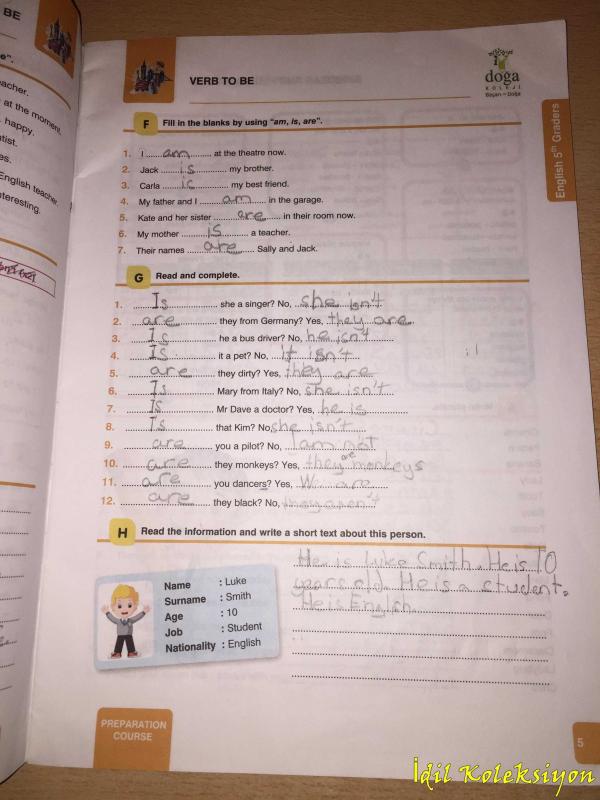 BE
e".
eacher.
at the moment.
happy.
tist.
es.
English teacher.
nteresting.
VERB TO BE
doğa
KOLEJİ
Başarı = Doğa
English 5th Graders
F Fill in the blanks by using "am, is, are".
1. I am at the theatre now.
2. Jack is my brother.
3. Carla is my best friend.
4. My father and I am in the garage.
5. Kate and her sister are in their room now.
6. My mother is a teacher.
7. Their names are Sally and Jack.
G Read and complete.
1. Is she a singer? No, she isn't
2. are they from Germany? Yes, they are
3. Is he a bus driver? No, he isn't
4. Is it a pet? No, It isn't
5. are they dirty? Yes, they are
6. Is Mary from Italy? No, she isn't
7. Is Mr Dave a doctor? Yes, he is
8. Is that Kim? No, she isn't
9. are you a pilot? No, I am not
10. are they monkeys? Yes, they are monkeys
11. are you dancers? Yes, W are
12. are they black? No, they aren't
H Read the information and write a short text about this person.
Name : Luke
Surname : Smith
Age : 10
Job : Student
Nationality : English
He is Luke Smith. He is 10
years old. He is a student.
He is English
PREPARATION
COURSE
5
İdil Koleksiyon